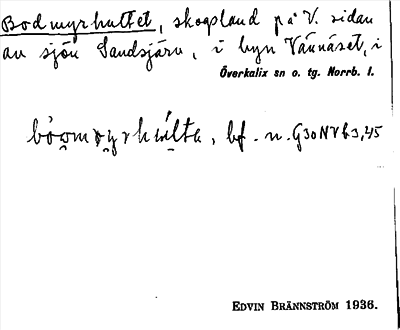 Bodmyrhultet, skogsland på V. sidan
av sjön Sandsjärv, i byn Vännäset, i
Överkalix sn o. tg. Norrb. l.
bf. n. G30NVb3,45
EDVIN BRÄNNSTRÖM 1936.